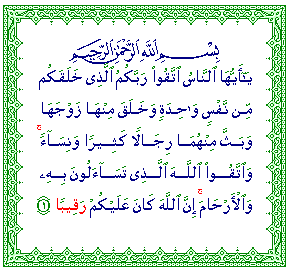 بِسْمِ اللَّهِ الرَّحْمَٰنِ الرَّحِيمِ
يَـٰٓأَيُّهَا ٱلنَّاسُ ٱتَّقُوا۟ رَبَّكُمُ ٱلَّذِى خَلَقَكُم
مِّن نَّفْسٍ وَٰحِدَةٍ وَخَلَقَ مِنْهَا زَوْجَهَا
وَبَثَّ مِنْهُمَا رِجَالًا كَثِيرًا وَنِسَآءً ۚ
وَٱتَّقُوا۟ ٱللَّهَ ٱلَّذِى تَسَآءَلُونَ بِهِۦ
وَٱلْأَرْحَامَ ۚ إِنَّ ٱللَّهَ كَانَ عَلَيْكُمْ رَقِيبًا ١